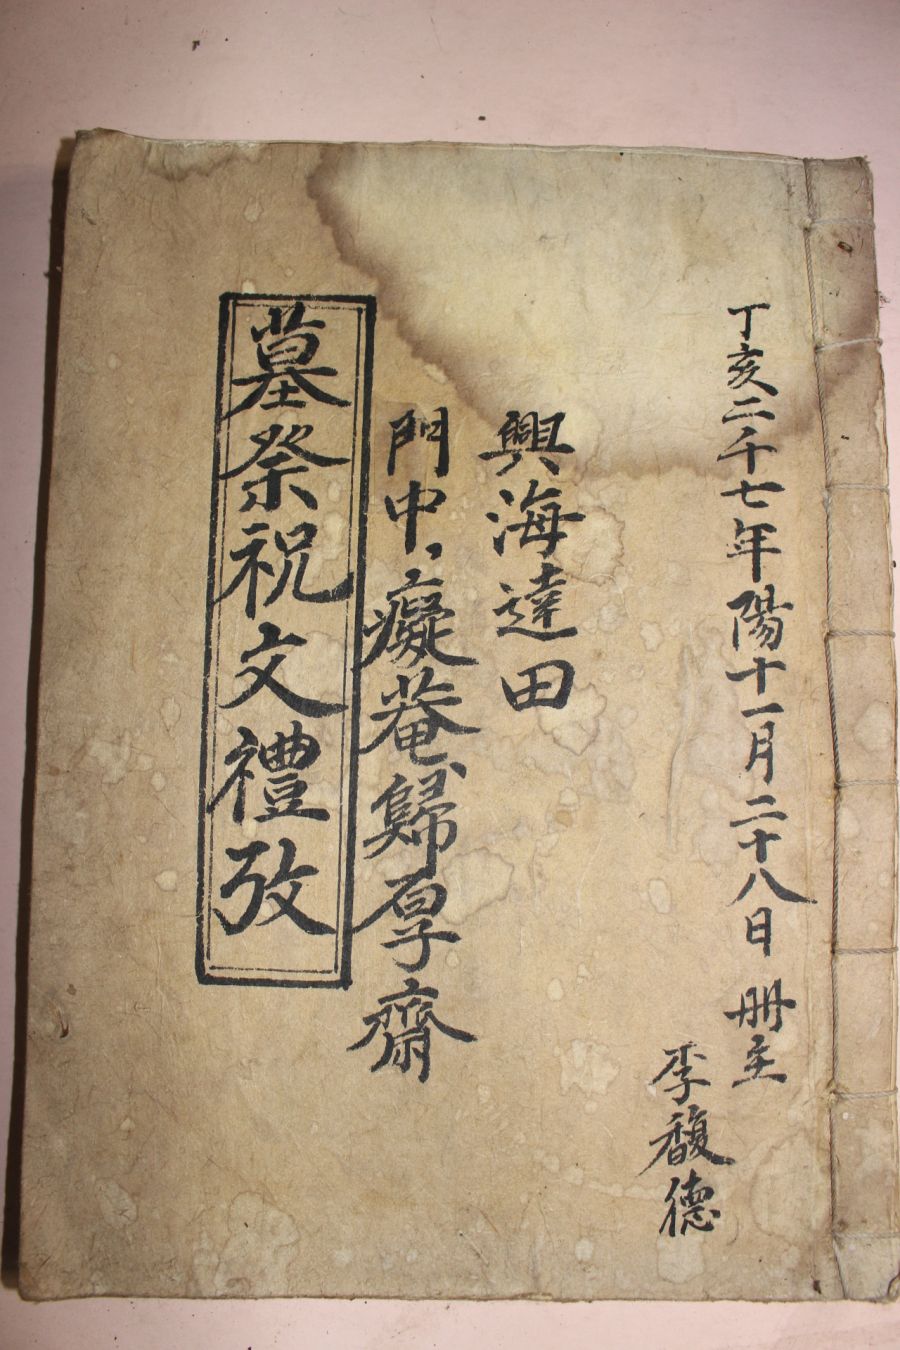 丁亥二千七年陽十一月二十八日 册主
李馥德
興海達田
門中、癡菴、歸厚齋
墓祭祝文禮攷